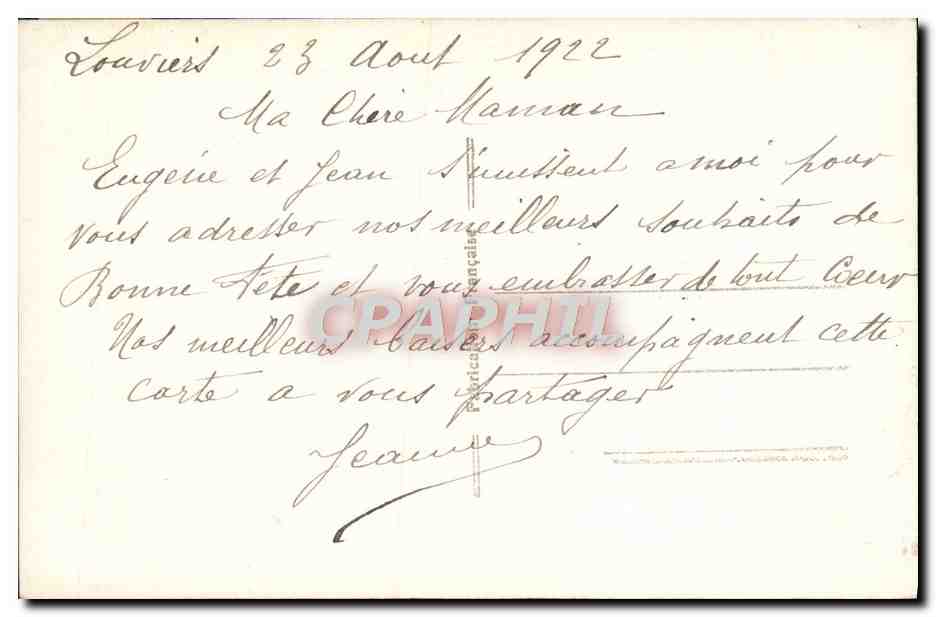 Louviers 23 Aout 1922
Ma Chère Maman
Eugénie et Jean s'unissent a moi pour
vous adresser nos meilleurs souhaits de
Bonne Fête et vous embrasser de tout Coeur
Nos meilleurs baisers accompagnent cette
carte a vous partager
Jeanne
Fabrication Française
CPAPHIL